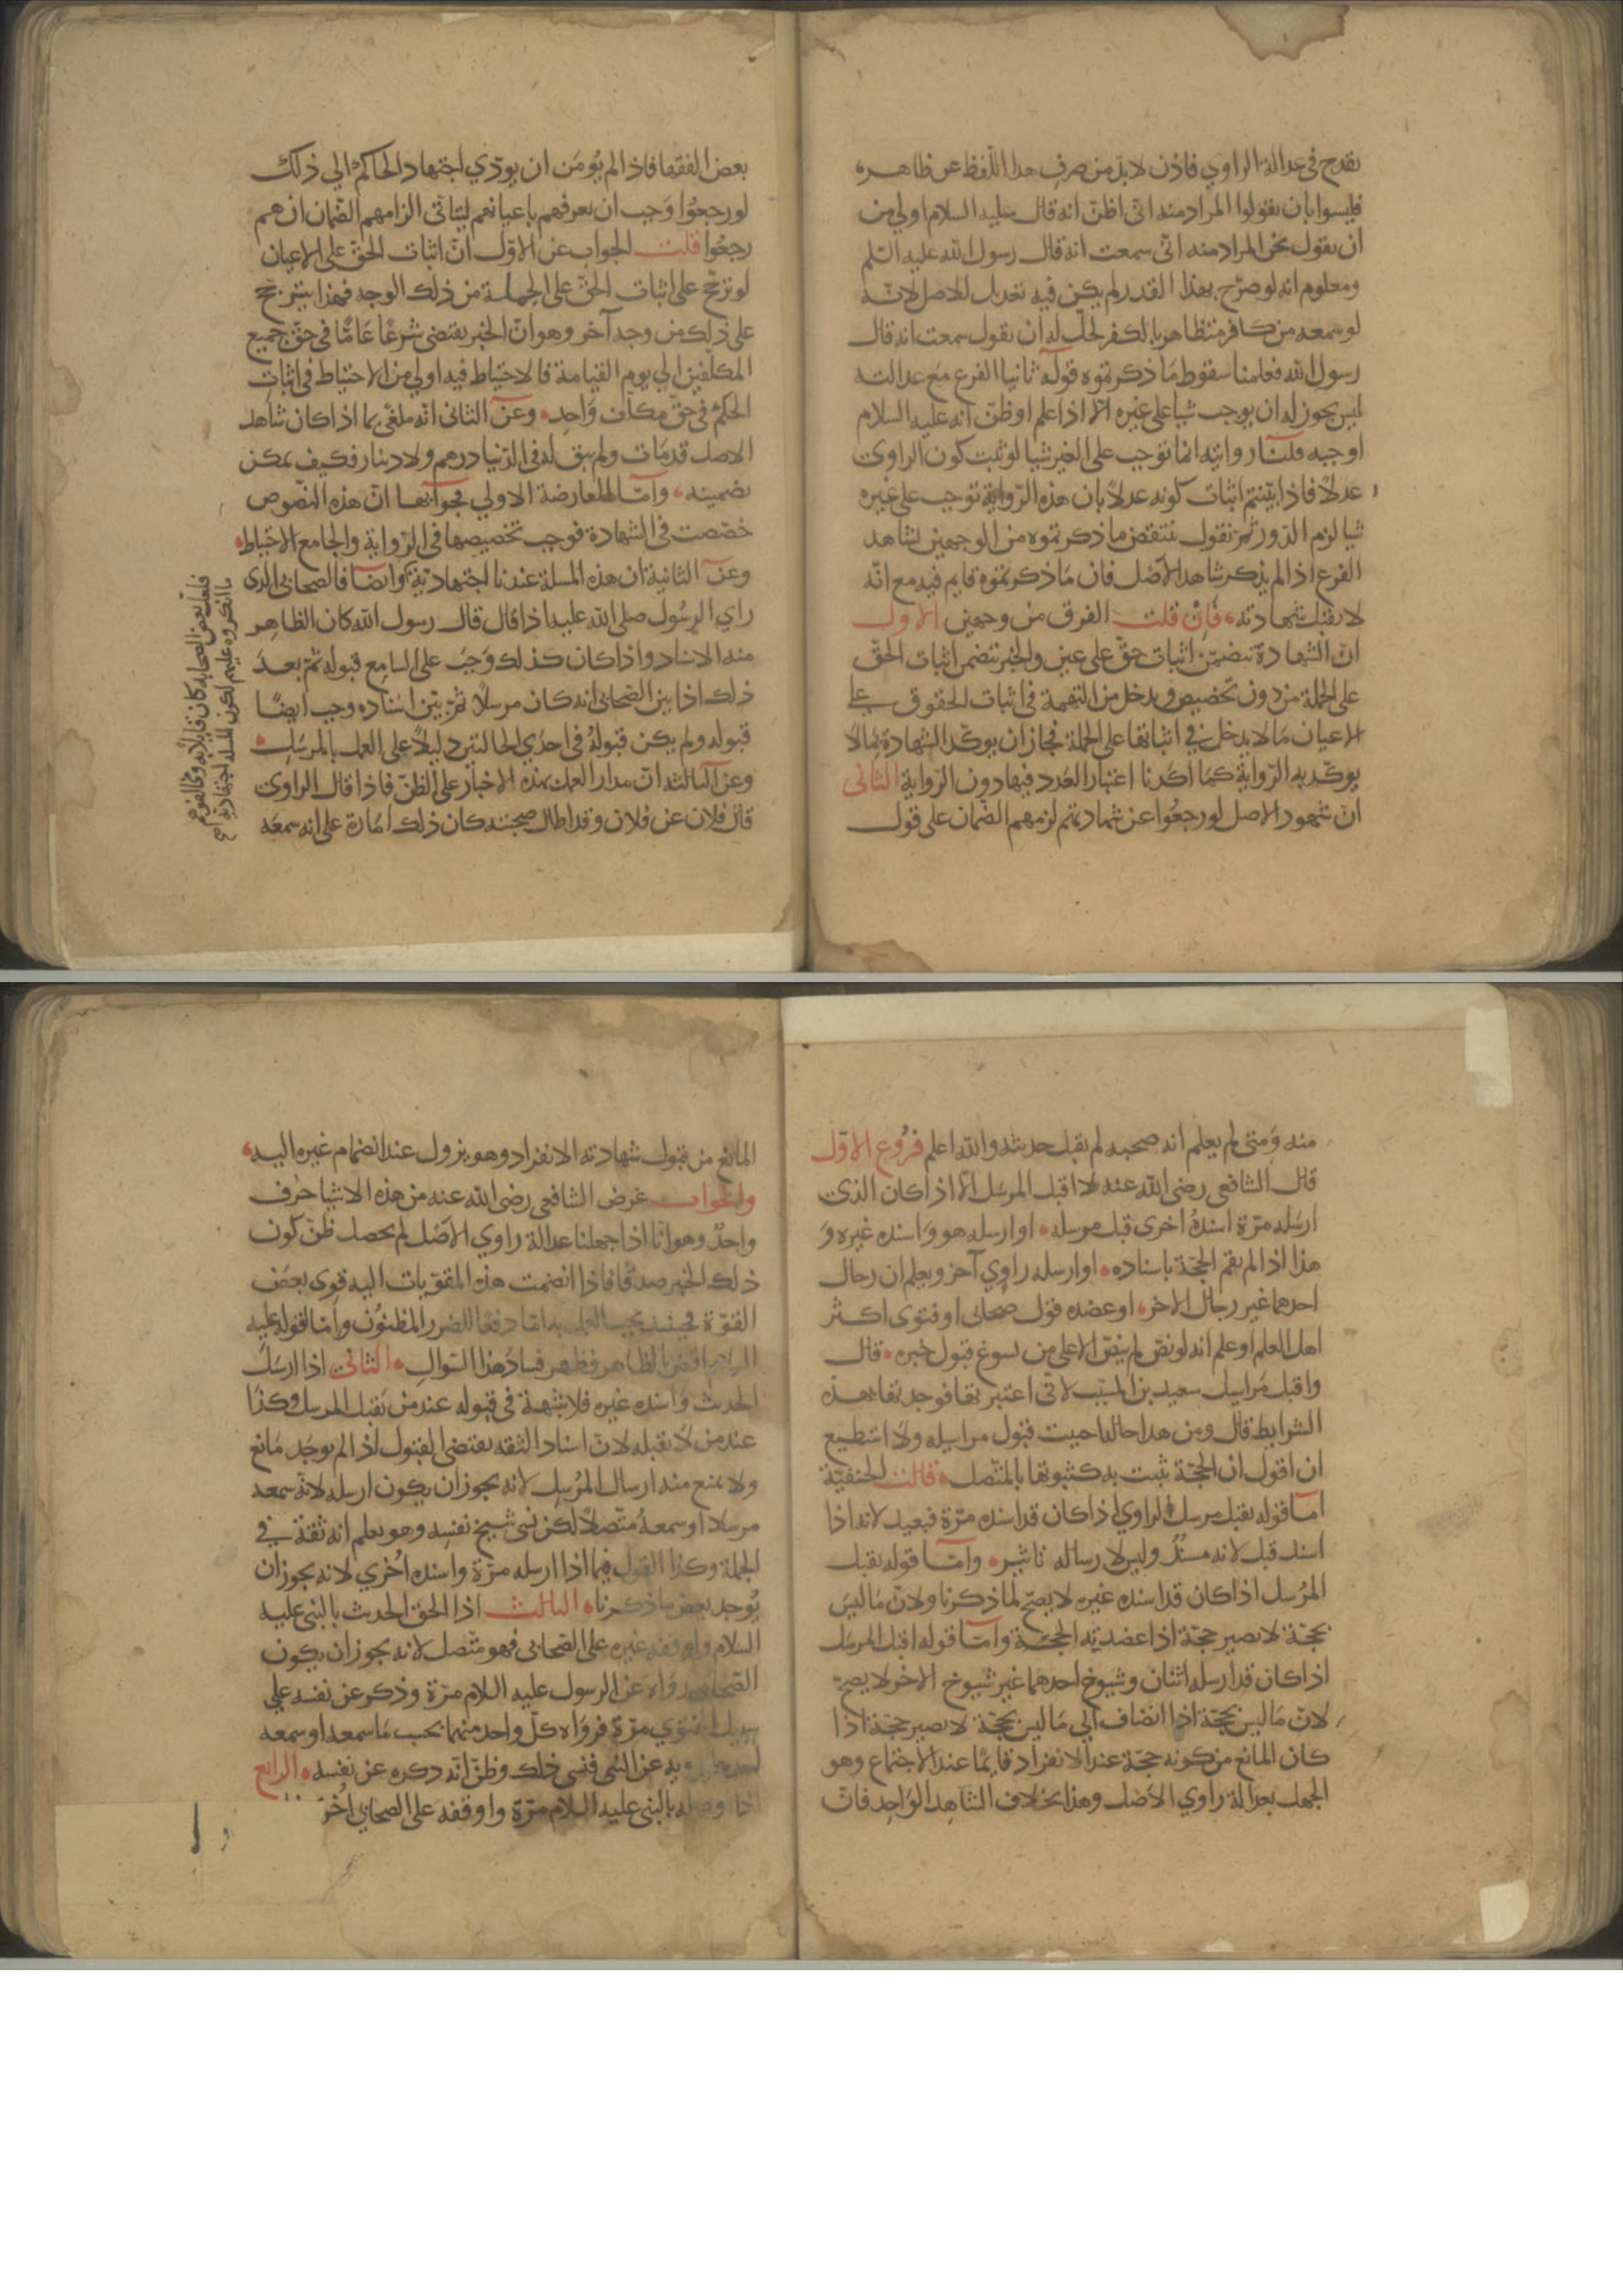 يقدح في عدالة الراوي فاذن لا بد من صرف هذا اللفظ عن ظاهره
فليسوا بان يقولوا المراد منه اني اظن انه قال عليه السلام اولي من
ان نقول نحن المراد منه اني سمعت انه قال رسول الله عليه السلم
ومعلوم انه لو صرح بهذا القدر لم يكن فيه تعديل للاصل لانه
لو سمعه من كافر متظاهر بالكفر لحل له ان يقول سمعت انه قال
رسول الله فعلمنا سقوط ما ذكرتموه قوله ثانيا الفرع مع عدالته
ليس يجوز له ان يوجب شيا على غيره الا اذا علم او ظن انه عليه السلام
اوجبه قلنا روايته انما توجب على الغير شيا لو ثبت كون الراوي
عدلا فاذا بينتم اثبات كونه عدلا بان هذه الرواية توجب على غيره
شيا لزم الدور ثم نقول ينتقض ما ذكرتموه من الوجهين لشاهد
الفرع اذا لم يذكر شاهد الاصل فان ما ذكرتموه قايم فيه مع انه
لا يقبل شهادته فان قلت الفرق من وجهين الاول
ان الشهادة تتضمن اثبات حق على عين والخبر يتضمن اثبات الحق
على الجملة من دون تخصيص ويدخل من التهمة في اثبات الحقوق على
الاعيان ما لا يدخل في اثباتها على الجملة فجاز ان يوكد الشهادة بما لا
يوكد به الرواية كما اكدنا اعتبار العدد فيها دون الرواية الثاني
ان شهود الاصل لو رجعوا عن شهادتهم لزمهم الضمان على قول
بعض الفقها فاذا لم يؤمن ان يودي اجتهاد الحاكم الي ذلك
لو رجعوا وجب ان يعرفهم باعيانهم ليتاتى الزامهم الضمان ان هم
رجعوا قلت الجواب عن الاول ان اثبات الحق على الاعيان
لو ترجح على اثبات الحق على الجملة من ذلك الوجه فهذا يترجح
على ذلك من وجه آخر وهو ان الخبر يقتضي شرعا عاما في حق جميع
المكلفين الي يوم القيامة فالاحتياط فيه اولي من الاحتياط في اثبات
الحكم في حق مكلف واحد وعن الثاني انه ملغى بما اذا كان شاهد
الاصل قد مات ولم يبق له في الدنيا درهم ولا دينار فكيف يمكن
تضمينه واما المعارضة الاولي فجوابها ان هذه النصوص
خصصت في الشهادة فوجب تخصيصها في الرواية والجامع الاحتياط
وعن الثانية ان هذه المسلة عندنا اجتهادية وايضا فالصحابي الذي
راي الرسول صلى الله عليه اذا قال قال رسول الله كان الظاهر
منه الاسناد واذا كان كذلك وجب على السامع قبوله ثم بعد
ذلك اذا بين الصحابي انه كان مرسلا ثم بين اسناده وجب ايضا
قبوله ولم يكن قبوله في احدي الحالتين دليلا على العمل بالمرسل
وعن الثالثه ان مدار العمل بهذه الاخبار على الظن فاذا قال الراوي
قال فلان عن فلان وقد اطال صحبته كان ذلك امارة على انه سمعه
فلعل بعض الصحابة كان قايلا به
ما انكروه عليهم لكون المسلة اجتهادية
منه ومتي لم يعلم انه صحبه لم نقبل حديثه والله اعلم فروع الاول
قال الشافعي رضي الله عنه لا اقبل المرسل الا اذا كان الذي
ارسله مرة اسنده اخرى قبل مرسله او ارسله هو واسنده غيره و
هذا اذا لم تقم الحجة باسناده او ارسله راوي آخر ويعلم ان رجال
احدهما غير رجال الاخر او عضده قول صحابي او فتوى اكثر
اهل العلم او علم انه لو نص لم ينص الا على من يسوغ قبول خبره قال
واقبل مراسيل سعيد بن المسيب لاني اعتبرتها فوجدتها بهذه
الشرايط قال ومن هذا حاله احببت قبول مراسيله ولا استطيع
ان اقول ان الحجة ثبتت به كثبوتها بالمتصل قالت الحنفية
اما قوله يقبل مرسل الراوي اذا كان قد اسنده مرة فبعيد لانه اذا
اسند قبل لانه مسند وليس لارساله تاثير واما قوله يقبل
المرسل اذا كان قد اسنده غيره لا يصح لما ذكرنا ولان ما ليس
بحجة لا يصير حجة اذا عضدته الحجة واما قوله اقبل المرسل
اذا كان قد ارسله اثنان وشيوخ احدهما غير شيوخ الاخر لا يصح
لان ما ليس بحجة اذا انضاف الي ما ليس بحجة لا يصير حجة اذا
كان المانع من كونه حجة عند الانفراد قايما عند الاجتماع وهو
الجهل بعدالة راوي الاصل وهذا بخلاف الشاهد الواحد فان
المانع من قبول شهادته الانفراد وهو يزول عند انضمام غيره اليه
والجواب غرض الشافعي رضي الله عنه من هذه الاشيا حرف
واحد وهو انا اذا جهلنا عدالة راوي الاصل لم يحصل ظن كون
ذلك الخبر صدقا فاذا انضمت هذه المقويات اليه قوى بعض
القوة فحينئذ يجب العمل به اما دفعا للضرر المظنون واما لقوله عليه
السلام اقض بالظاهر فظهر فساد هذا السوال الثاني اذا ارسل
الحديث واسنده غيره فلا شبهة في قبوله عند من يقبل المرسل وكذا
عند من لا يقبله لان اسناد الثقه يقتضي القبول اذا لم يوجد مانع
ولا يمنع منه ارسال المرسل لانه يجوز ان يكون ارسله لانه سمعه
مرسلا او سمعه متصلا لكن نسي شيخ نفسه وهو يعلم انه ثقة في
الجملة وكذا القول فيما اذا ارسله مرة واسنده اخري لانه يجوز ان
يوجد بعض ما ذكرنا الثالث اذا الحق الحديث بالنبي عليه
السلام واوقفه غيره على الصحابي فهو متصل لانه يجوز ان يكون
الصحابي رواه عن الرسول عليه السلام مرة وذكر عن نفسه علي
سبيل الفتوي مرة فرواه كل واحد منهما بحسب ما سمعه او سمعه
احدهما يرويه عن النبي فنسي ذلك وظن انه ذكره عن نفسه الرابع
اذا وصله بالنبي عليه السلام مرة واوقفه على الصحابي اخر